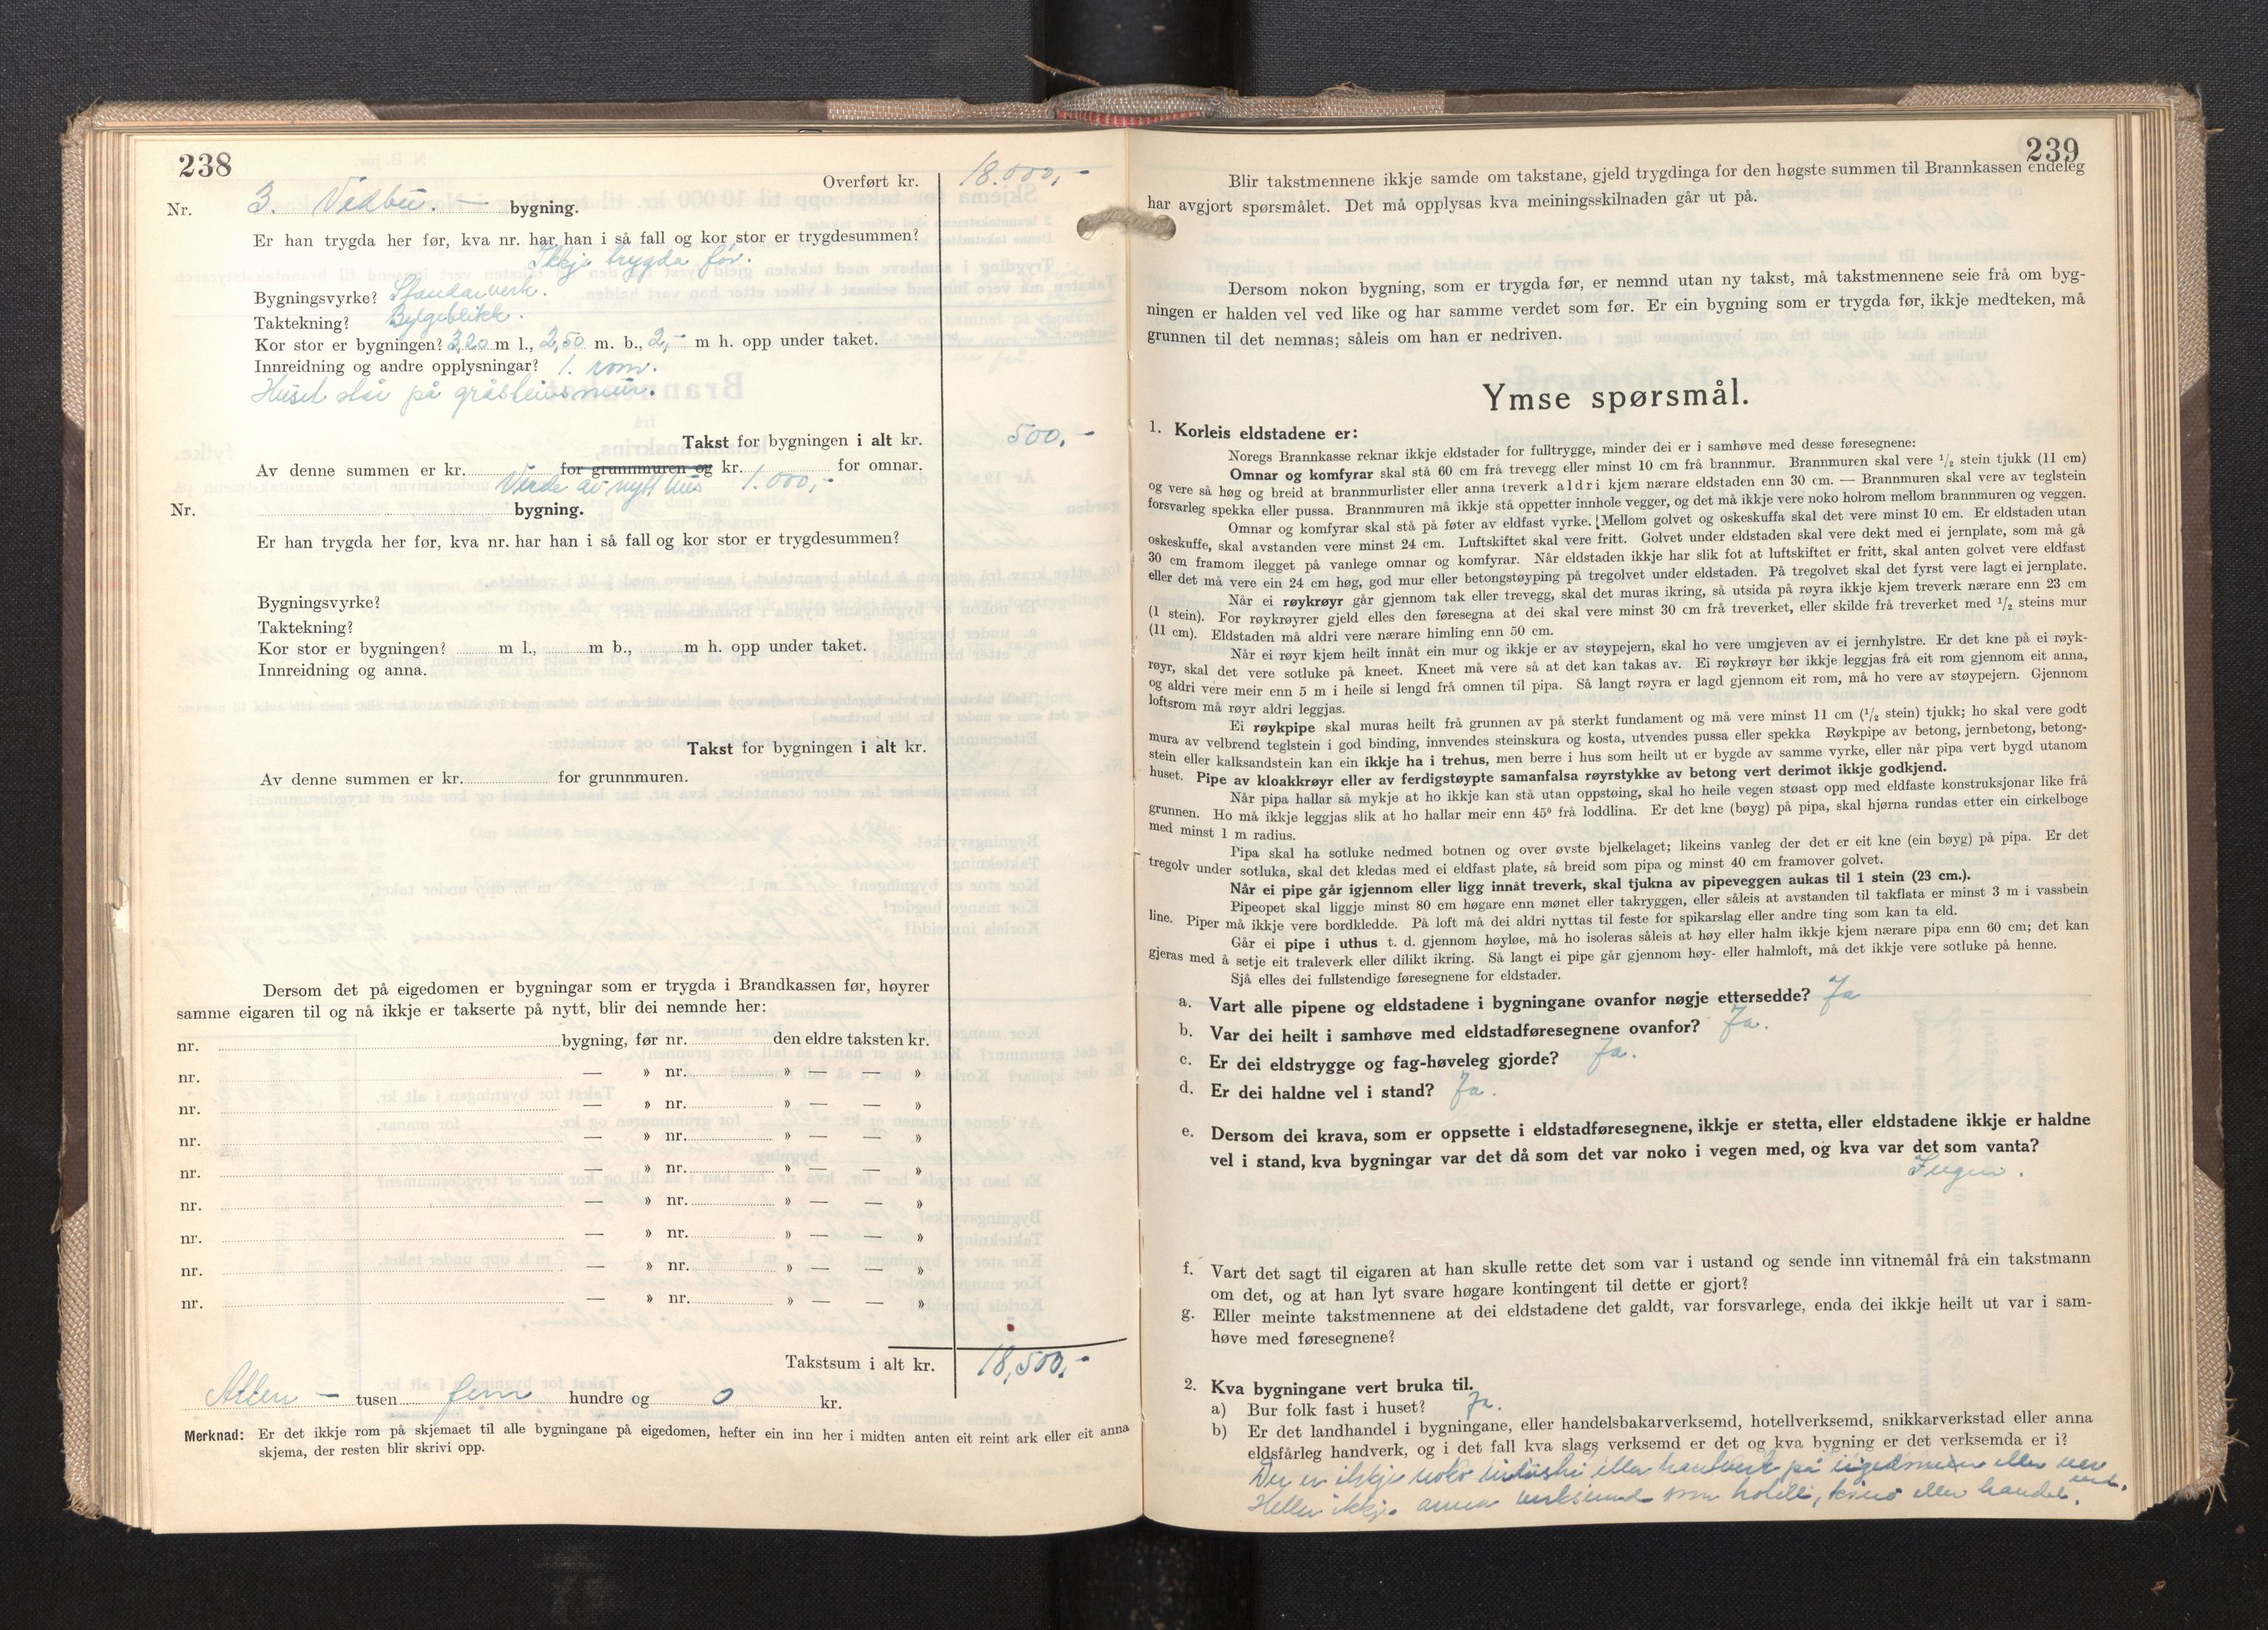 238
Overført kr. 18.000,-
Nr. 3. Vedbu. — bygning.
Er han trygda her før, kva nr. har han i så fall og kor stor er trygdesummen?
Ikkje trygda før.
Bygningsvyrke? Standarverk.
Taktekning? Bylgeblikk.
Kor stor er bygningen? 3,20 m l., 2,50 m. b., 2,- m h. opp under taket.
Innreidning og andre opplysningar? 1. rom.
Huset står på gråsteinsmur.
Takst for bygningen i alt kr. 500,-
Av denne summen er kr. for grunnmuren og kr. for omnar.
Verde av nytt hus 1.000,-
Nr. bygning.
Er han trygda her før, kva nr. har han i så fall og kor stor er trygdesummen?
Bygningsvyrke?
Taktekning?
Kor stor er bygningen? m l., m b., m h. opp under taket.
Innreidning og anna.
Takst for bygningen i alt kr.
Av denne summen er kr. for grunnmuren.
Dersom det på eigedomen er bygningar som er trygda i Brandkassen før, høyrer
samme eigaren til og nå ikkje er takserte på nytt, blir dei nemnde her:
nr. bygning, før nr. den eldre taksten kr.
nr. — » nr. » — — »
nr. — » nr. » — — »
nr. — » nr. » — — »
nr. — » nr. » — — »
nr. — » nr. » — — »
nr. — » nr. » — — »
nr. — » nr. » — — »
nr. — » nr. » — — »
Takstsum i alt kr. 18,500,-
Atten — tusen fem hundre og 0 kr.
Merknad: Er det ikkje rom på skjemaet til alle bygningane på eigedomen, hefter ein inn her i midten anten eit reint ark eller eit anna
skjema, der resten blir skrivi opp.
239
Blir takstmennene ikkje samde om takstane, gjeld trygdinga for den høgste summen til Brannkassen endeleg
har avgjort spørsmålet. Det må opplysas kva meiningsskilnaden går ut på.
Dersom nokon bygning, som er trygda før, er nemnd utan ny takst, må takstmennene seie frå om byg-
ningen er halden vel ved like og har samme verdet som før. Er ein bygning som er trygda før, ikkje medteken, må
grunnen til det nemnas; såleis om han er nedriven.
Ymse spørsmål.
1. Korleis eldstadene er:
Noregs Brannkasse reknar ikkje eldstader for fulltrygge, minder dei er i samhøve med desse føresegnene:
Omnar og komfyrar skal stå 60 cm frå trevegg eller minst 10 cm frå brannmur. Brannmuren skal vere 1/2 stein tjukk (11 cm)
og vere så høg og breid at brannmurlister eller anna treverk aldri kjem nærare eldstaden enn 30 cm. — Brannmuren skal vere av teglstein
forsvarleg spekka eller pussa. Brannmuren må ikkje stå oppetter innhole vegger, og det må ikkje vere noko holrom mellom brannmuren og veggen.
Omnar og komfyrar skal stå på føter av eldfast vyrke. Mellom golvet og oskeskuffa skal det vere minst 10 cm. Er eldstaden utan
oskeskuffe, skal avstanden vere minst 24 cm. Luftskiftet skal vere fritt. Golvet under eldstaden skal vere dekt med ei jernplate, som må gå
30 cm framom ilegget på vanlege omnar og komfyrar. Når eldstaden ikkje har slik fot at luftskiftet er fritt, skal anten golvet vere eldfast
eller det må vere ein 24 cm høg, god mur eller betongstøyping på tregolvet under eldstaden. På tregolvet skal det fyrst vere lagt ei jernplate.
Når ei røykrøyr går gjennom tak eller trevegg, skal det muras ikring, så utsida på røyra ikkje kjem treverk nærare enn 23 cm
(1 stein). For røykrøyrer gjeld elles den føresegna at dei skal vere minst 30 cm frå treverket, eller skilde frå treverket med 1/2 steins mur
(11 cm). Eldstaden må aldri vere nærare himling enn 50 cm.
Når ei røyr kjem heilt innåt ein mur og ikkje er av støypejern, skal ho vere umgjeven av ei jernhylstre. Er det kne på ei røyk-
røyr, skal det vere sotluke på kneet. Kneet må vere så at det kan takas av. Ei røykrøyr bør ikkje leggjas frå eit rom gjennom eit anna,
og aldri vere meir enn 5 m i heile si lengd frå omnen til pipa. Så langt røyra er lagd gjennom eit rom, må ho vere av støypejern. Gjennom
loftsrom må røyr aldri leggjas.
Ei røykpipe skal muras heilt frå grunnen av på sterkt fundament og må vere minst 11 cm (1/2 stein) tjukk; ho skal vere godt
mura av velbrend teglstein i god binding, innvendes steinskura og kosta, utvendes pussa eller spekka Røykpipe av betong, jernbetong, betong-
stein eller kalksandstein kan ein ikkje ha i trehus, men berre i hus som heilt ut er bygde av samme vyrke, eller når pipa vert bygd utanom
huset. Pipe av kloakkrøyr eller av ferdigstøypte samanfalsa røyrstykke av betong vert derimot ikkje godkjend.
Når pipa hallar så mykje at ho ikkje kan stå utan oppstøing, skal ho heile vegen støast opp med eldfaste konstruksjonar like frå
grunnen. Ho må ikkje leggjas slik at ho hallar meir enn 45° frå loddlina. Er det kne (bøyg) på pipa, skal hjørna rundas etter ein cirkelboge
med minst 1 m radius.
Pipa skal ha sotluke nedmed botnen og over øvste bjelkelaget; likeins vanleg der det er eit kne (ein bøyg) på pipa. Er det
tregolv under sotluka, skal det kledas med ei eldfast plate, så breid som pipa og minst 40 cm framover golvet.
Når ei pipe går igjennom eller ligg innåt treverk, skal tjukna av pipeveggen aukas til 1 stein (23 cm.).
Pipeopet skal liggje minst 80 cm høgare enn mønet eller takryggen, eller såleis at avstanden til takflata er minst 3 m i vassbein
line. Piper må ikkje vere bordkledde. På loft må dei aldri nyttas til feste for spikarslag eller andre ting som kan ta eld.
Går ei pipe i uthus t. d. gjennom høyløe, må ho isoleras såleis at høy eller halm ikkje kjem nærare pipa enn 60 cm; det kan
gjeras med å setje eit traleverk eller dilikt ikring. Så langt ei pipe går gjennom høy- eller halmloft, må det ikkje vere sotluke på henne.
Sjå elles dei fullstendige føresegnene for eldstader.
a. Vart alle pipene og eldstadene i bygningane ovanfor nøgje ettersedde? Ja
b. Var dei heilt i samhøve med eldstadføresegnene ovanfor? Ja.
c. Er dei eldstrygge og fag-høveleg gjorde? Ja.
d. Er dei haldne vel i stand? Ja.
e. Dersom dei krava, som er oppsette i eldstadføresegnene, ikkje er stetta, eller eldstadene ikkje er haldne
vel i stand, kva bygningar var det då som det var noko i vegen med, og kva var det som vanta?
Ingen.
f. Vart det sagt til eigaren at han skulle rette det som var i ustand og sende inn vitnemål frå ein takstmann
om det, og at han lyt svare høgare kontingent til dette er gjort?
g. Eller meinte takstmennene at dei eldstadene det galdt, var forsvarlege, enda dei ikkje heilt ut var i sam-
høve med føresegnene?
2. Kva bygningane vert bruka til.
a) Bur folk fast i huset? Ja.
b) Er det landhandel i bygningane, eller handelsbakarverksemd, hotellverksemd, snikkarverkstad eller anna
eldsfårleg handverk, og i det fall kva slags verksemd er det og kva bygning er det verksemda er i?
Der er ikkje noko industri eller handverk på eigedomen eller ner ved.
Heller ikkje anna verksemd som hotell, kino eller handel.